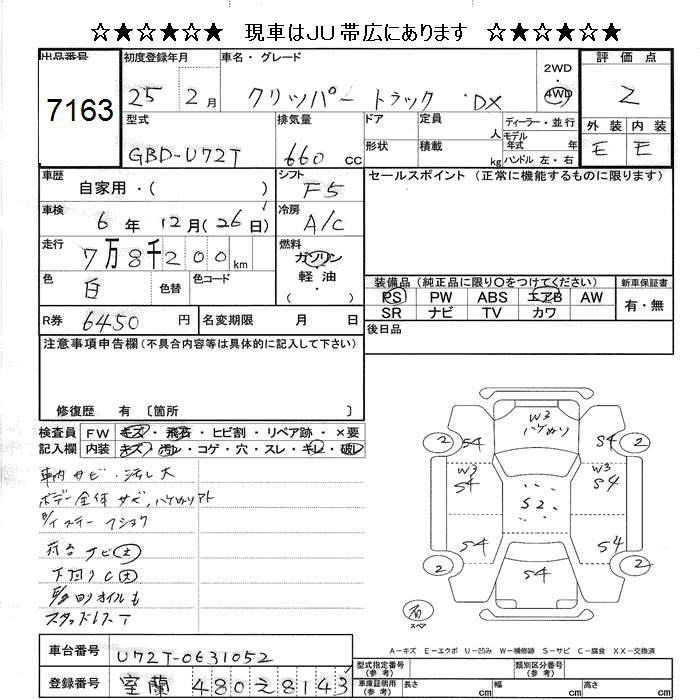 ☆★☆★☆★☆ 現車はJU帯広にあります ☆★☆★☆★☆
出品番号
7163
初度登録年月
25 2月
車名・グレード
クリッパー トラック・DX
2WD
・
4WD
評価点
2
型式
GBD-U72T
排気量
660 cc
ドア
定員
人
形状
積載
kg
ディーラー・並行
モデル年式 年
ハンドル 左・右
外装 内装
E E
車歴
自家用・( )
シフト
F5
車検
6年 12月(26日)
冷房
A/C
走行
7万8千200km
燃料
ガソリン
軽油
( ・ )
色
白
色替
色コード
R券
6450円
名変期限 月 日
セールスポイント(正常に機能するものに限ります)
装備品(純正品に限り〇をつけてください)
PS PW ABS エアB AW
SR ナビ TV カワ
新車保証書
有・無
後日品
注意事項申告欄(不具合内容等は具体的に記入して下さい)
修復歴 有 〔箇所 〕
検査員記入欄
FW キズ・飛石・ヒビ割・リペア跡・×要
内装 キズ・汚レ・コゲ・穴・スレ・キレ・破レ
車内サビ・汚レ大
ボデー全体サビ、ハケぬりアト
荷台サビ大
下回りC大
スタッドレスT
W3
ハケぬり
2 S4 S4 2
W3 S4 W3 S4
S2
S4 S4
2 S4 2
スペア
A-キズ E-エクボ U-凹み W-補修跡 S-サビ C-腐食 XX-交換済
車台番号
U72T-0631052
登録番号
室蘭 480え8143
型式指定番号(参考)
類別区分番号(参考)
車庫証明用(参考) 長さ cm 幅 cm 高さ cm